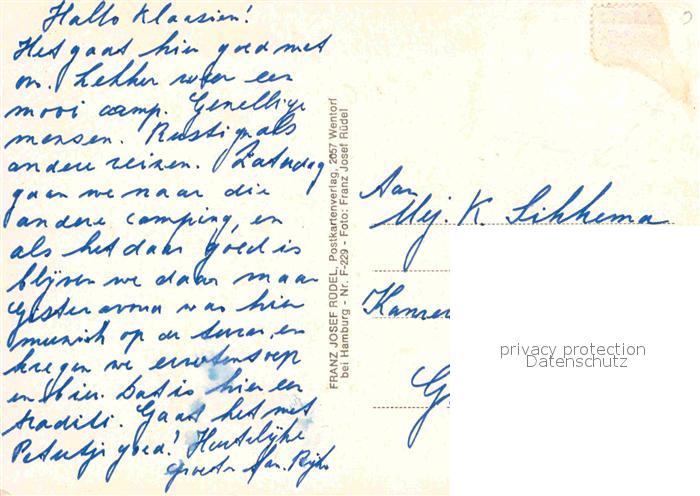 Hallo Klaasien!
Het gaat hier goed met
ons. Lekker weer een
mooi camp. Gezellige
mensen. Rustig als
andere reizen. Zaterdag
gaan we naar die
andere camping, en
als het daar goed is
blijven we daar maar
Gisteravond was hier
muziek op de terras, en
kregen we erwtensoep
en bier. Dat is hier een
traditi. Gaat het met
Petertje goed? Hartelijke
groeten
FRANZ JOSEF RÜDEL, Postkartenverlag, 2057 Wentorf
bei Hamburg - Nr. F-229 - Foto: Franz Josef Rüdel
Aan
Mej. K. Sikkema
privacy protection
Datenschutz